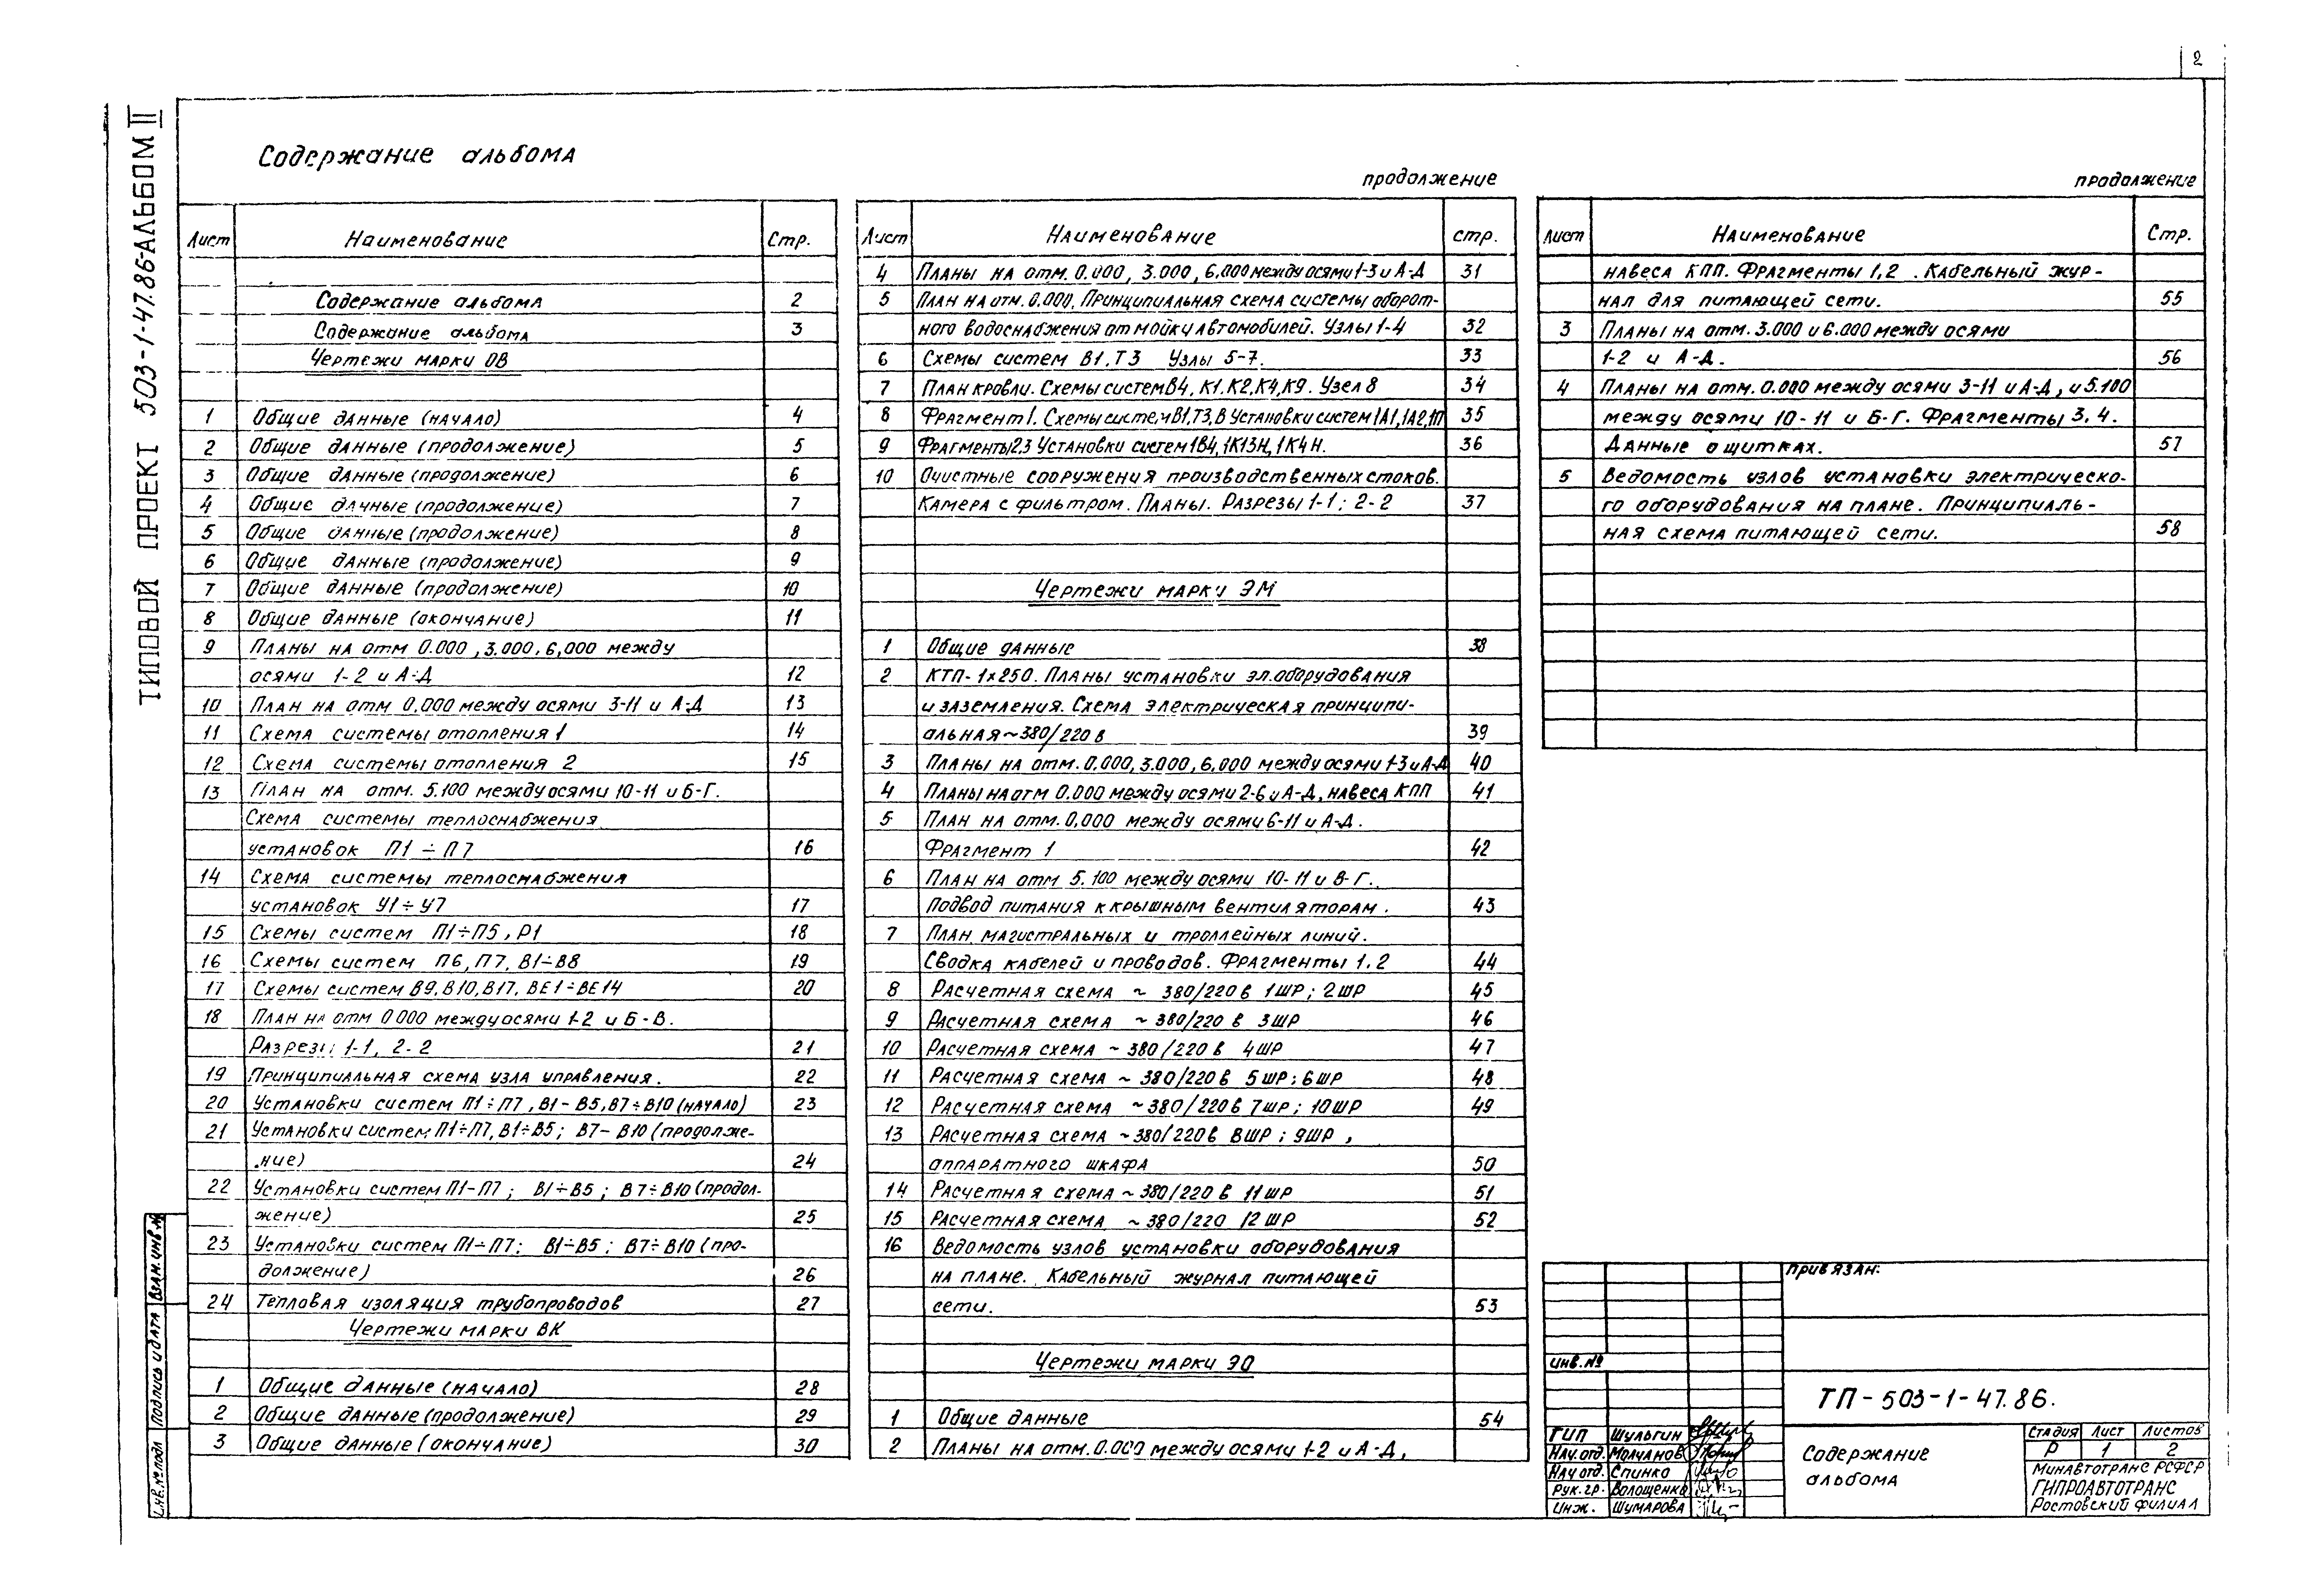 2
ТИПОВОЙ ПРОЕКТ 503-1-47.86-АЛЬБОМ II
Содержание альбома
Лист Наименование Стр.
Содержание альбома 2
Содержание альбома 3
Чертежи марки ОВ
1 Общие данные (начало) 4
2 Общие данные (продолжение) 5
3 Общие данные (продолжение) 6
4 Общие данные (продолжение) 7
5 Общие данные (продолжение) 8
6 Общие данные (продолжение) 9
7 Общие данные (продолжение) 10
8 Общие данные (окончание) 11
9 Планы на отм 0.000, 3.000, 6,000 между
осями 1-2 и А÷Д 12
10 План на отм 0.000 между осями 3-11 и А-Д 13
11 Схема системы отопления 1 14
12 Схема системы отопления 2 15
13 План на отм. 5.100 между осями 10-11 и Б-Г.
Схема системы теплоснабжения
установок П1 ÷ П7 16
14 Схема системы теплоснабжения
установок У1÷У7 17
15 Схемы систем П1÷П5, Р1 18
16 Схемы систем П6, П7, В1÷В8 19
17 Схемы систем В9, В10, В17, ВЕ1÷ВЕ14 20
18 План на отм 0.000 между осями 1-2 и Б-В.
Разрезы 1-1, 2-2 21
19 Принципиальная схема узла управления. 22
20 Установки систем П1÷П7, В1-В5, В7÷В10 (начало) 23
21 Установки систем П1÷П7, В1÷В5; В7-В10 (продолже-
ние) 24
22 Установки систем П1-П7; В1÷В5; В7÷В10 (продол-
жение) 25
23 Установки систем П1÷П7; В1÷В5; В7÷В10 (про-
должение) 26
24 Тепловая изоляция трубопроводов 27
Чертежи марки ВК
1 Общие данные (начало) 28
2 Общие данные (продолжение) 29
3 Общие данные (окончание) 30
продолжение
Лист Наименование стр.
4 Планы на отм. 0.000, 3.000, 6.000 между осями 1-3 и А-Д 31
5 План на отм. 0.000. Принципиальная схема системы оборот-
ного водоснабжения от мойки автомобилей. Узлы 1-4 32
6 Схемы систем В1, Т3 Узлы 5-7. 33
7 План кровли. Схемы систем В4, К1, К2, К4, К9. Узел 8 34
8 Фрагмент 1. Схемы систем В1, Т3, В Установки систем 1А1, 1А2, 1П 35
9 Фрагменты 2,3 Установки систем 1В4, 1К13Н, 1К4Н. 36
10 Очистные сооружения производственных стоков.
Камера с фильтром. Планы. Разрезы 1-1; 2-2 37
Чертежи марки ЭМ
1 Общие данные 38
2 КТП-1х250. Планы установки эл.оборудования
и заземления. Схема электрическая принципи-
альная ~380/220 в 39
3 Планы на отм. 0.000, 3.000, 6,000 между осями 1-3 и А-Д 40
4 Планы на отм 0.000 между осями 2-6 и А-Д, навеса КПП 41
5 План на отм. 0,000 между осями 6-11 и А-Д.
Фрагмент 1 42
6 План на отм 5.100 между осями 10-11 и В-Г.
Подвод питания к крышным вентиляторам. 43
7 План магистральных и троллейных линий.
Сводка кабелей и проводов. Фрагменты 1,2 44
8 Расчетная схема ~ 380/220 в 1ШР; 2ШР 45
9 Расчетная схема ~ 380/220 в 3ШР 46
10 Расчетная схема ~ 380/220 в 4ШР 47
11 Расчетная схема ~ 380/220 в 5ШР; 6ШР 48
12 Расчетная схема ~380/220 в 7ШР; 10ШР 49
13 Расчетная схема ~380/220 в 8ШР; 9ШР,
аппаратного шкафа 50
14 Расчетная схема ~ 380/220 в 11ШР 51
15 Расчетная схема ~380/220 12ШР 52
16 Ведомость узлов установки оборудования
на плане. Кабельный журнал питающей
сети. 53
Чертежи марки ЭО
1 Общие данные 54
2 Планы на отм. 0.000 между осями 1-2 и А-Д,
продолжение
Лист Наименование Стр.
навеса КПП. Фрагменты 1,2. Кабельный жур-
нал для питающей сети. 55
3 Планы на отм. 3.000 и 6.000 между осями
1-2 и А-Д. 56
4 Планы на отм. 0.000 между осями 3-11 и А-Д, и 5.100
между осями 10-11 и Б-Г. Фрагменты 3, 4.
Данные о щитках. 57
5 Ведомость узлов установки электрическо-
го оборудования на плане. Принципиаль-
ная схема питающей сети. 58
Привязан:
Инв. №
ТП-503-1-47.86.
ГИП Шульгин
Нач.отд. Молчанов
Нач отд. Спинко
Рук. гр. Волощенко
Инж. Шумарова
Содержание
альбома
Стадия Лист Листов
Р 1 2
Минавтотранс РСФСР
ГИПРОАВТОТРАНС
Ростовский филиал
Взам. инв. №
Подпись и дата
Инв. № подл